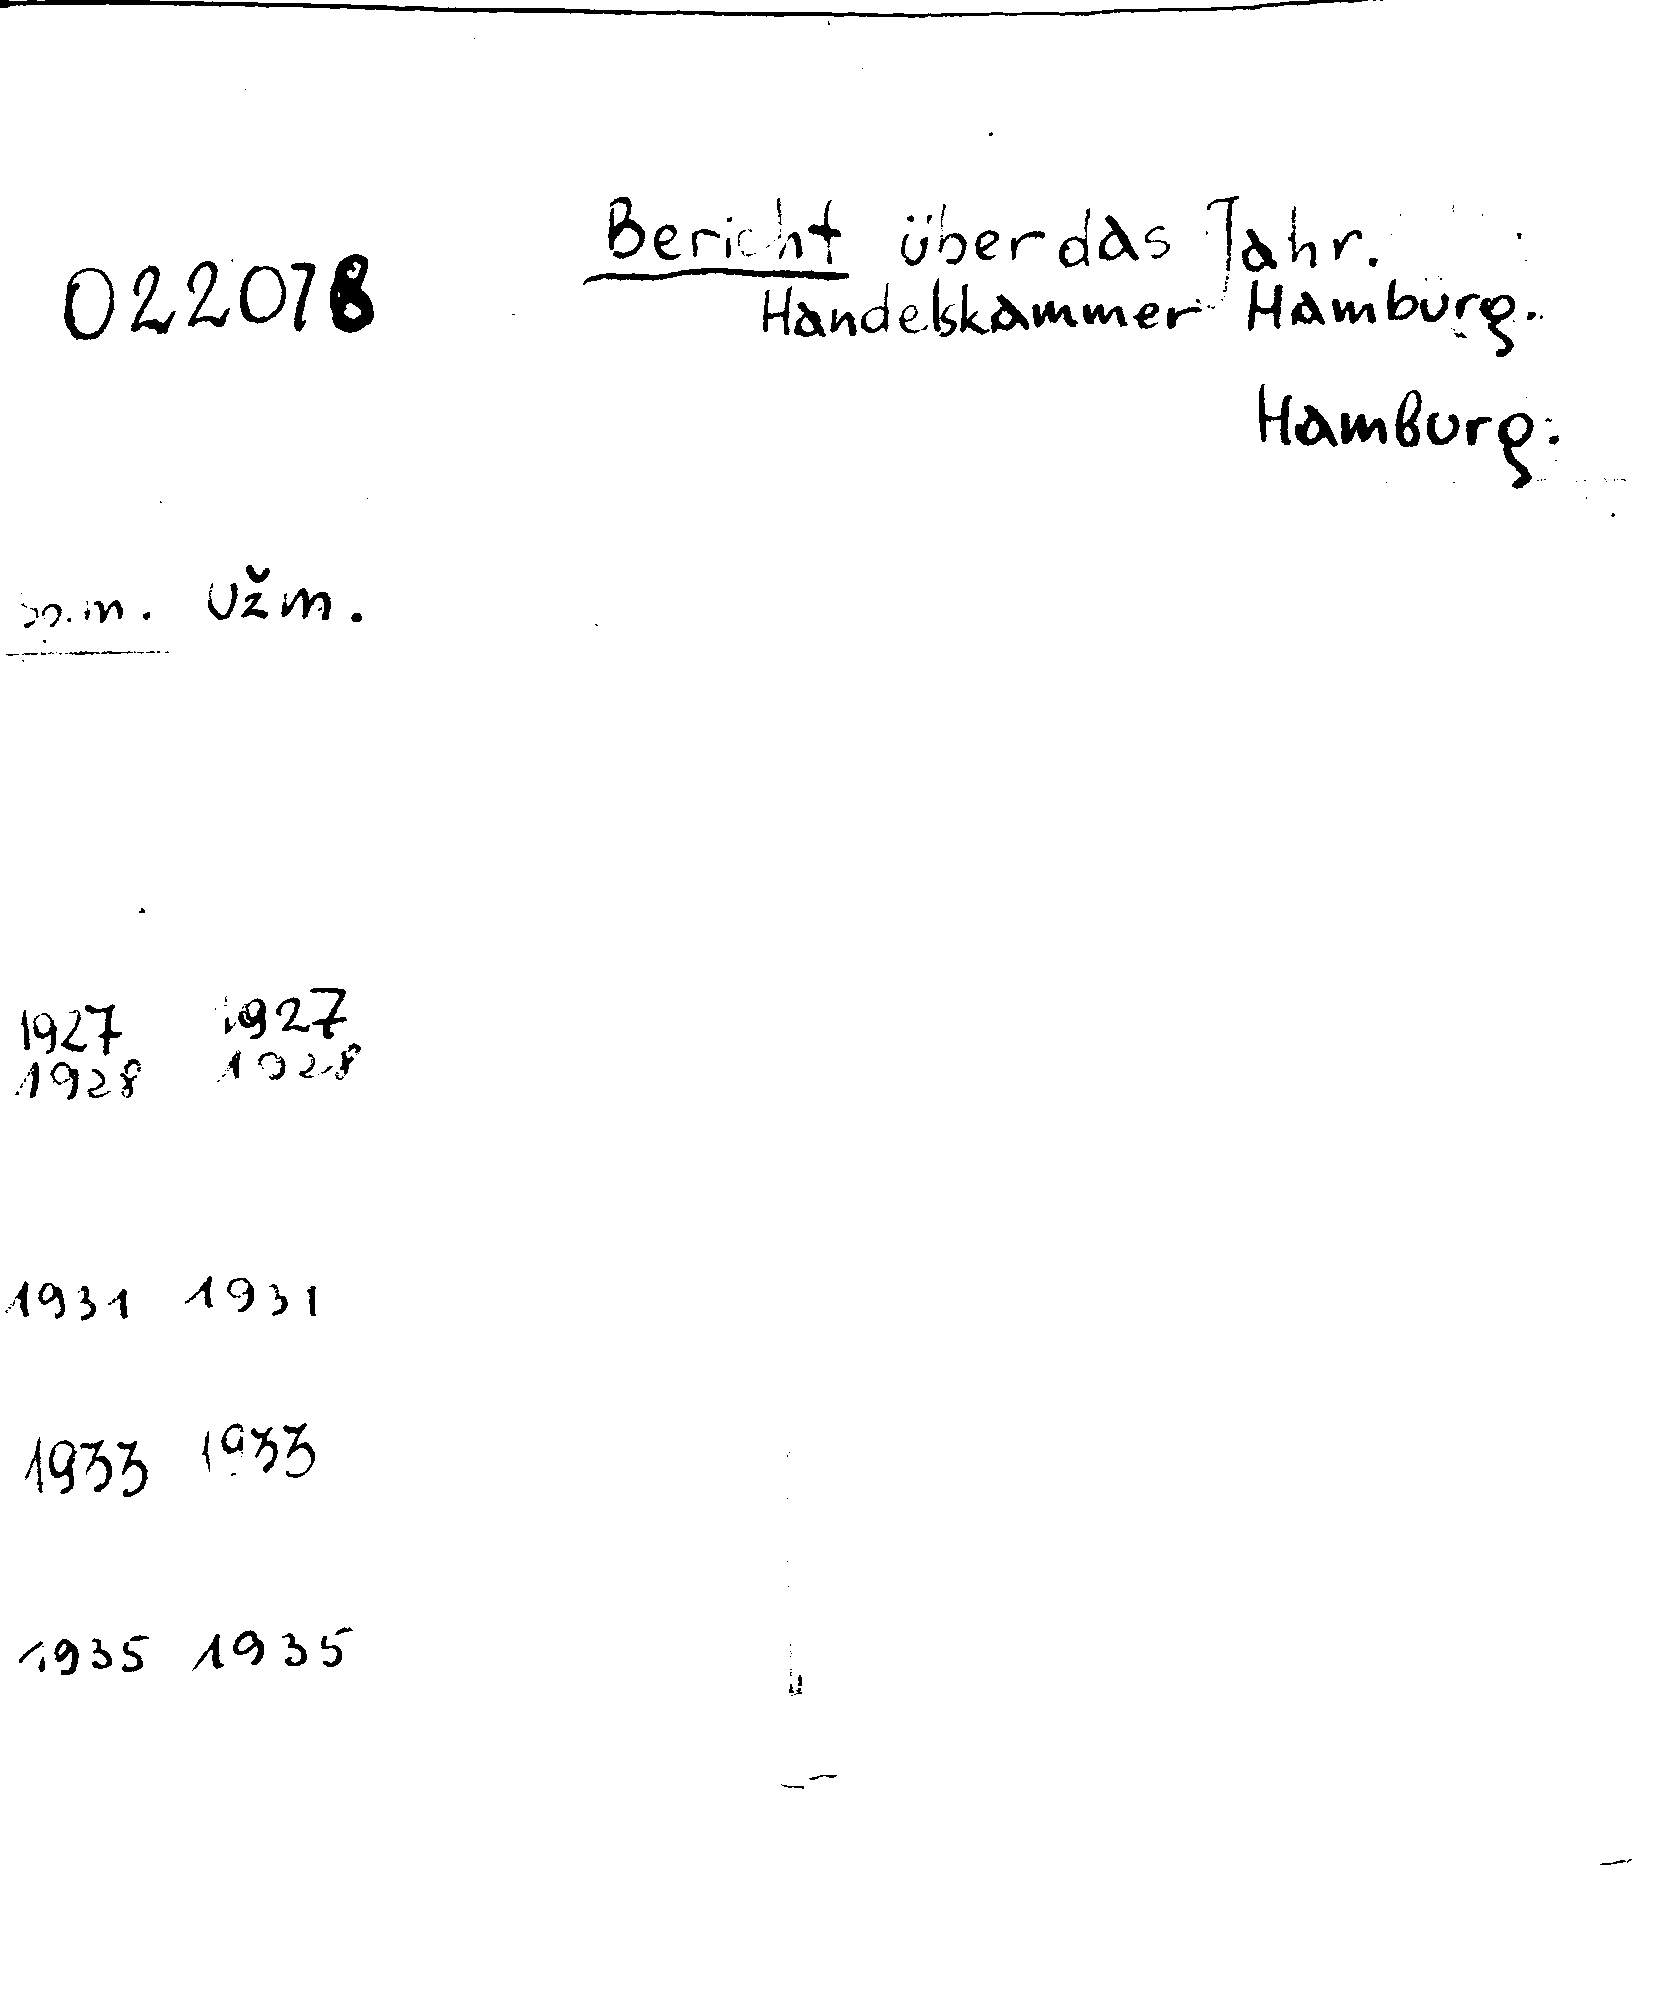 Bericht über das Jahr.
022078
Handelskammer Hamburg.
Hamburg.
užm.
1927 1927
1928 1928
1931 1931
1933 1933
1935 1935